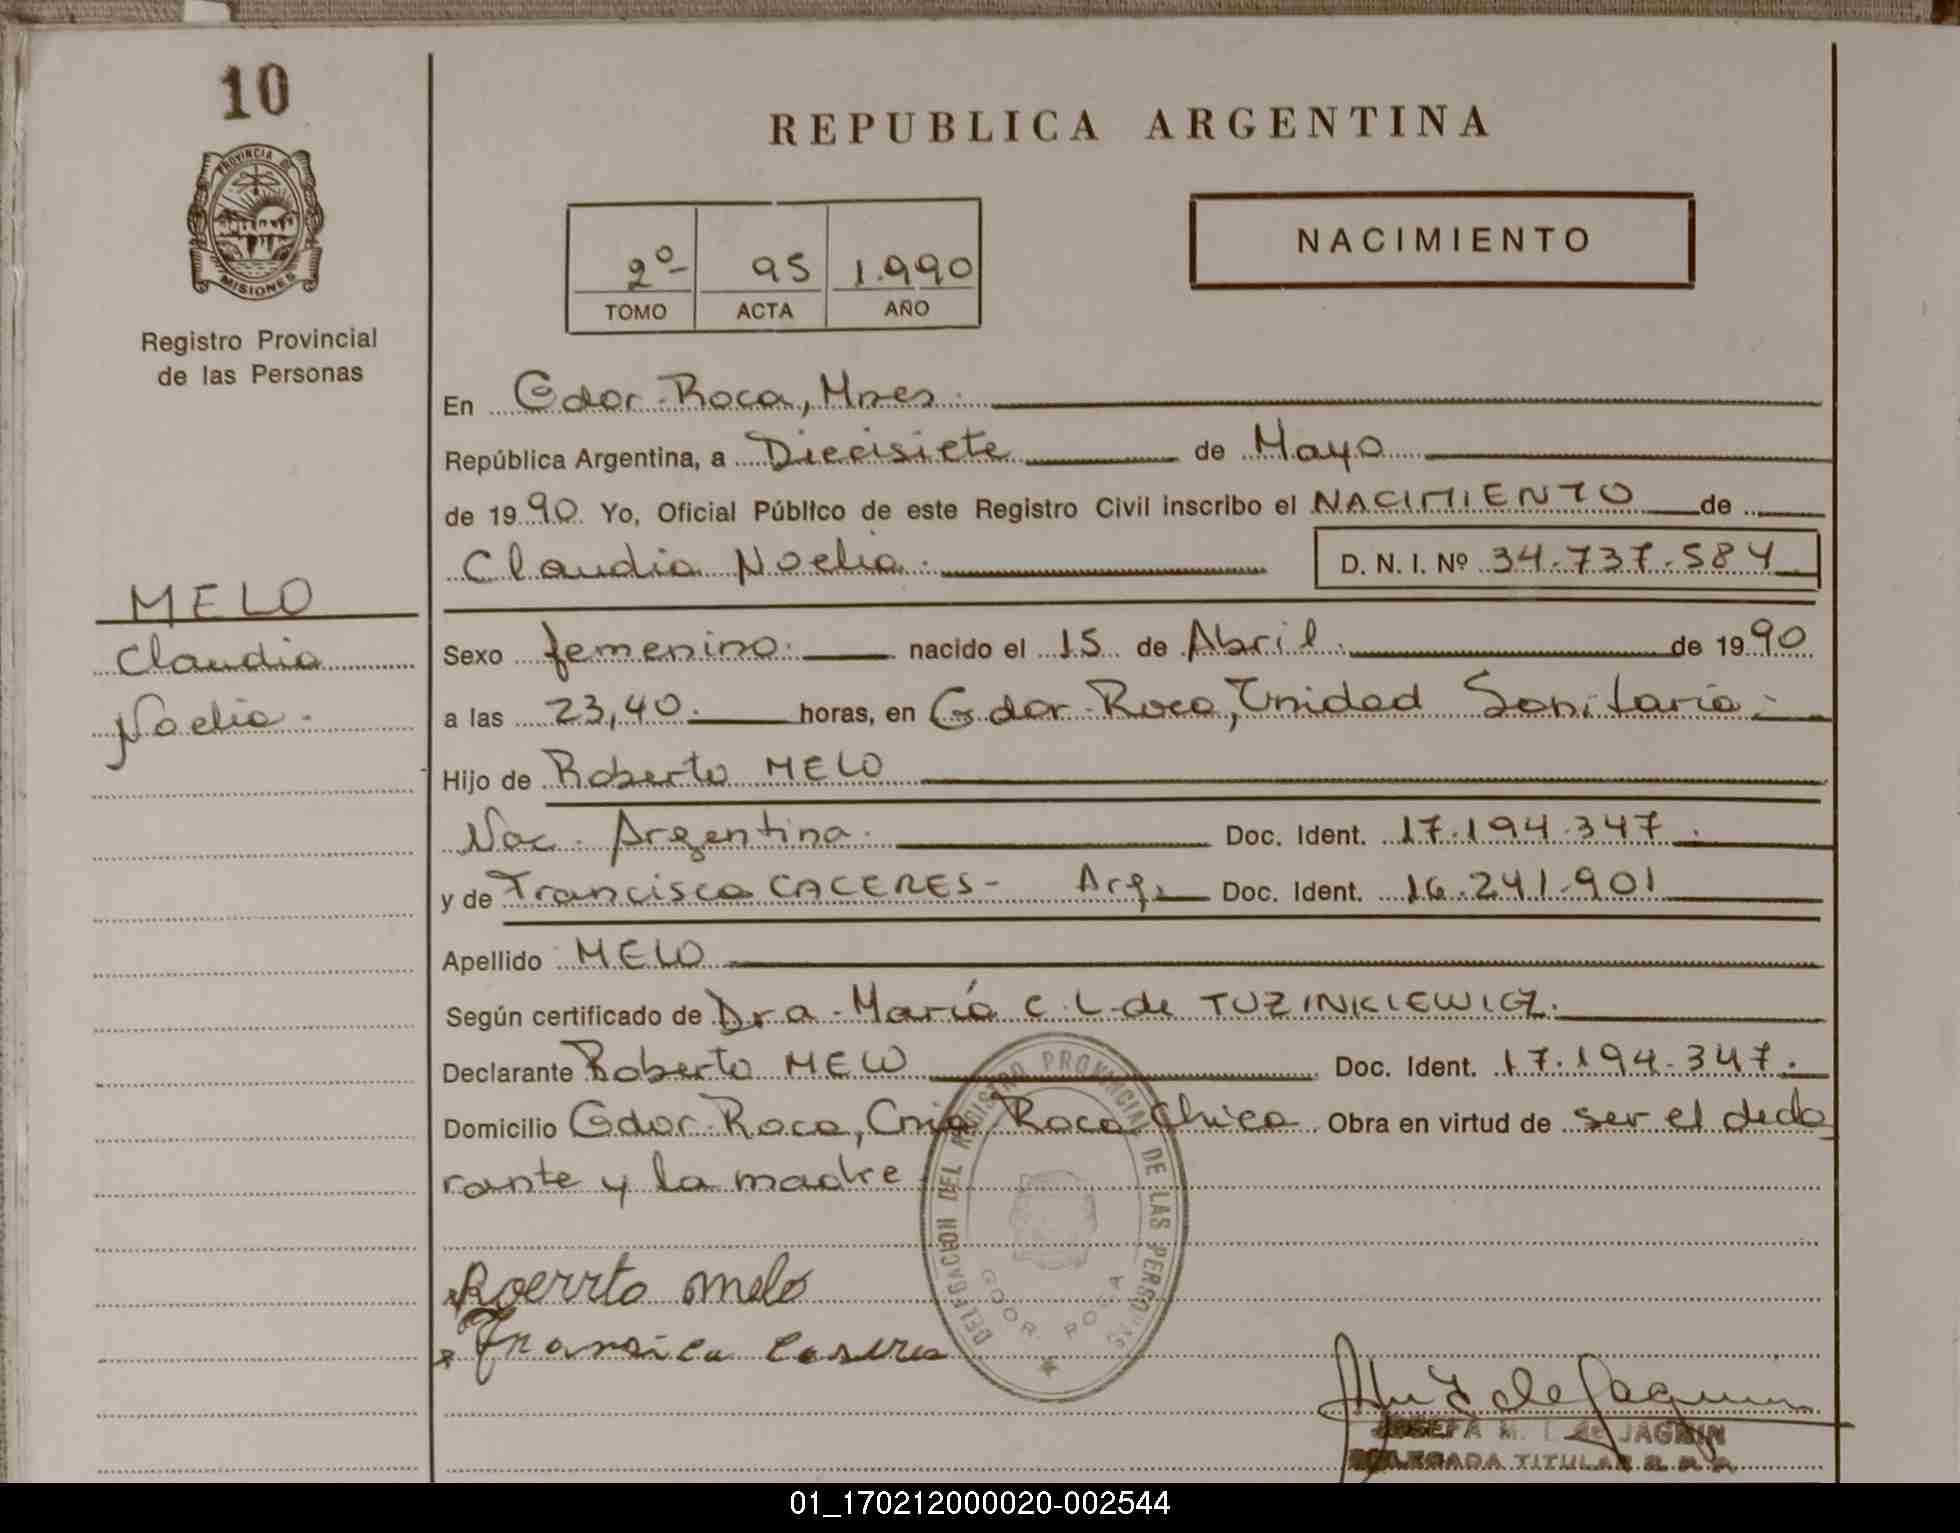 10
PROVINCIA DE
MISIONES
Registro Provincial
de las Personas
MELO
Claudia
Noelia.
REPUBLICA ARGENTINA
2º 95 1.990
TOMO ACTA AÑO
NACIMIENTO
En Gdor. Roca, Mnes.
República Argentina, a Diecisiete de Mayo
de 1990. Yo, Oficial Público de este Registro Civil inscribo el NACIMIENTO de
Claudia Noelia. D. N. I. Nº 34.737.584
Sexo femenino. nacido el 15 de Abril. de 1990
a las 23,40. horas, en Gdor. Roca, Unidad Sanitaria.-
Hijo de Roberto MELO
Nac. Argentina. Doc. Ident. 17.194.347.
y de Francisca CACERES- Arg. Doc. Ident. 16.241.901
Apellido MELO
Según certificado de Dra. María C. L. de TUZINKIEWICZ.
Declarante Roberto MELO Doc. Ident. 17.194.347.
Domicilio Gdor. Roca, Cnia. Roca Chica Obra en virtud de ser el decla
rante y la madre
DELEGACION DEL REGISTRO PROVINCIAL DE LAS PERSONAS
GDOR. ROCA
Roerrto melo
JOSEFA M. I. de JAGMIN
DELEGADA TITULAR
01_170212000020-002544